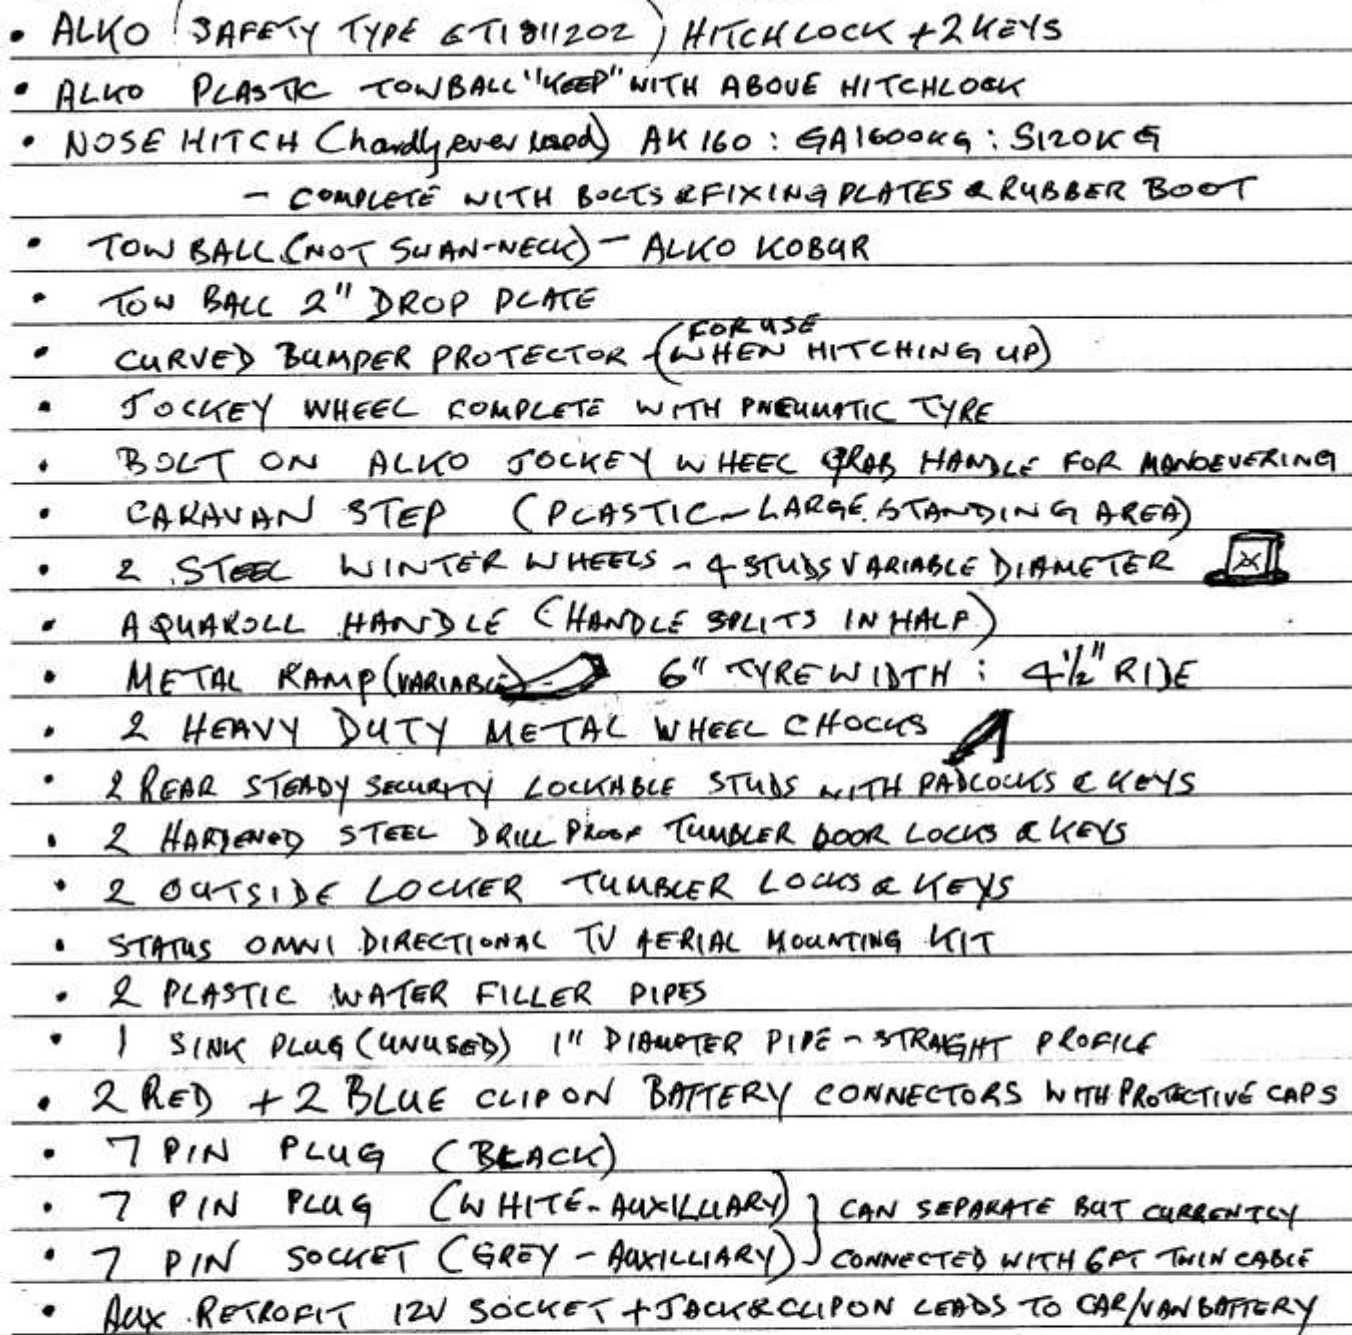 • ALKO (SAFETY TYPE GT1811202) HITCHLOCK + 2 KEYS
• ALKO PLASTIC TOWBALL "KEEP" WITH ABOVE HITCHLOCK
• NOSE HITCH (hardly ever used) AK 160 : GA1600KG : S120KG
- COMPLETE WITH BOLTS & FIXING PLATES & RUBBER BOOT
• TOW BALL (NOT SWAN-NECK) - ALKO KOBUR
• TOW BALL 2" DROP PLATE
• CURVED BUMPER PROTECTOR - (FOR USE WHEN HITCHING UP)
• JOCKEY WHEEL COMPLETE WITH PNEUMATIC TYRE
• BOLT ON ALKO JOCKEY WHEEL GRAB HANDLE FOR MANOEVERING
• CARAVAN STEP (PLASTIC - LARGE STANDING AREA)
• 2 STEEL WINTER WHEELS - 4 STUDS VARIABLE DIAMETER
• AQUAROLL HANDLE (HANDLE SPLITS IN HALF)
• METAL RAMP (VARIABLE) - 6" TYRE WIDTH : 4½" RIDE
• 2 HEAVY DUTY METAL WHEEL CHOCKS
• 2 REAR STEADY SECURITY LOCKABLE STUDS WITH PADLOCKS & KEYS
• 2 HARDENED STEEL DRILL PROOF TUMBLER DOOR LOCKS & KEYS
• 2 OUTSIDE LOCKER TUMBLER LOCKS & KEYS
• STATUS OMNI DIRECTIONAL TV AERIAL MOUNTING KIT
• 2 PLASTIC WATER FILLER PIPES
• 1 SINK PLUG (UNUSED) 1" DIAMETER PIPE - STRAIGHT PROFILE
• 2 RED + 2 BLUE CLIP ON BATTERY CONNECTORS WITH PROTECTIVE CAPS
• 7 PIN PLUG (BLACK)
• 7 PIN PLUG (WHITE - AUXILLIARY) } CAN SEPARATE BUT CURRENTLY
• 7 PIN SOCKET (GREY - AUXILLIARY) CONNECTED WITH 6FT TWIN CABLE
• AUX. RETROFIT 12V SOCKET + JACK & CLIPON LEADS TO CAR/VAN BATTERY